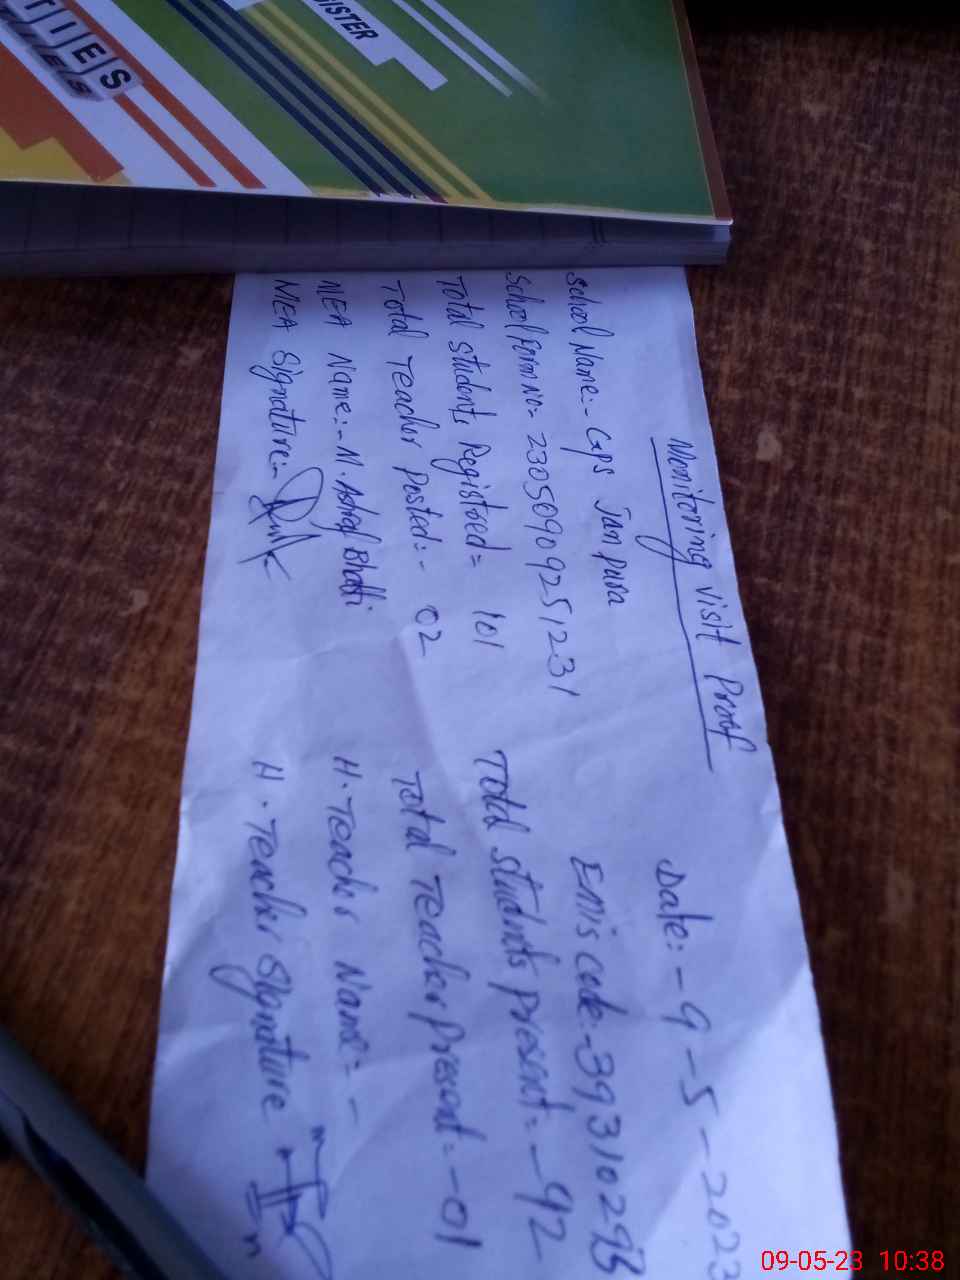 TIES
GISTER
Monitoring visit Proof
Date:- 9-5-2023
School Name:- Gps Jan pura
Emis code:- 39310293
School Form No= 23050909251231
Total students Registred= 101
Total students present:- 92
Total Teacher Posted:- 02
Total Teacher present:- 01
MEA Name:- M. Ashraf Bhatti
H. Teacher Name:-
MEA Signature:-
H. Teacher Signature
09-05-23 10:38